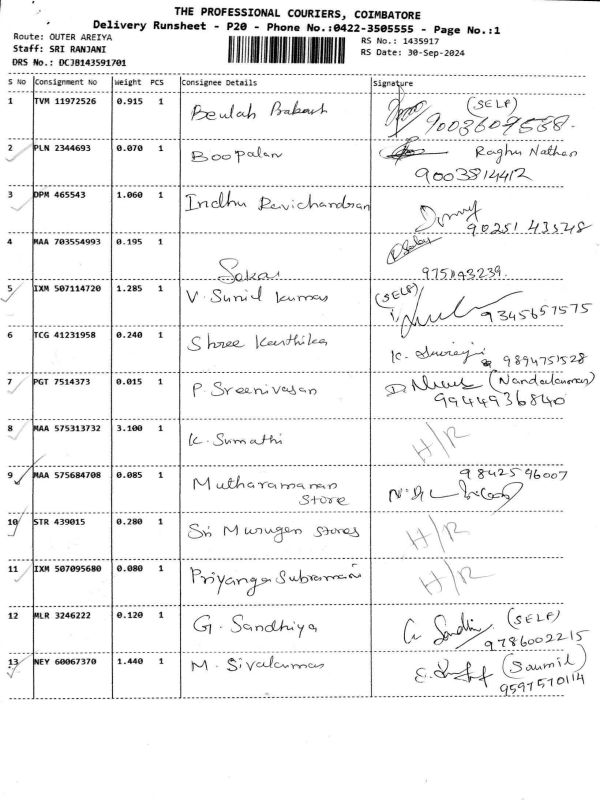 THE PROFESSIONAL COURIERS, COIMBATORE
Delivery Runsheet - P20 - Phone No.:0422-3505555 - Page No.:1
Route: OUTER AREIYA
Staff: SRI RANJANI
DRS No.: DCJB143591701
RS No.: 1435917
RS Date: 30-Sep-2024
S No Consignment No Weight PCS Consignee Details Signature
1 TVM 11972526 0.915 1 Beulah Prakash (SELF)
2 PLN 2344693 0.070 1 Boopalan Raghu Nathan
9003814412
3 DPM 465543 1.060 1 Indhu Ravichandran
90251 43548
4 MAA 703554993 0.195 1
5 IXM 507114720 1.285 1 V. Sunil Kumar (SELF)
9345657575
6 TCG 41231958 0.240 1 Shree Karthika
9894751528
7 PGT 7514373 0.015 1 P. Sreenivasan (Nandakumar)
9944936840
8 MAA 575313732 3.100 1 K. Sumathi H/R
9 MAA 575684708 0.085 1 Mutharamanan Store
9842596007
10 STR 439015 0.280 1 Sri Murugan Stores H/R
11 IXM 507095680 0.080 1 Priyanga Subramani H/R
12 MLR 3246222 0.120 1 G. Sandhiya G. Sandhi (SELF)
9786002215
13 NEY 60067370 1.440 1 M. Sivakumar (Saumil)
9597570114